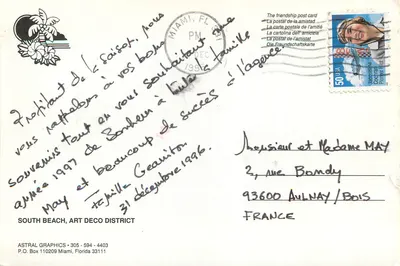 Profitant de la saison, nous
vous rappelons à vos bons
souvenirs tout en vous souhaitant une
année 1997 de Bonheur à toute la famille
May et beaucoup de succès à l'agence.
Famille
31 décembre 1996.
SOUTH BEACH, ART DECO DISTRICT
ASTRAL GRAPHICS • 305 - 594 - 4403
P.O. Box 110209 Miami, Florida 33111
MIAMI, FL
PM
The friendship post card
La postal de la amistad
La carte postale de l'amitié
La cartolina dell' amicizia
La postal da amistat
Die Freundschaftskarte
50
Monsieur et Madame MAY
2, rue Bondy
93600 AULNAY/BOIS
FRANCE